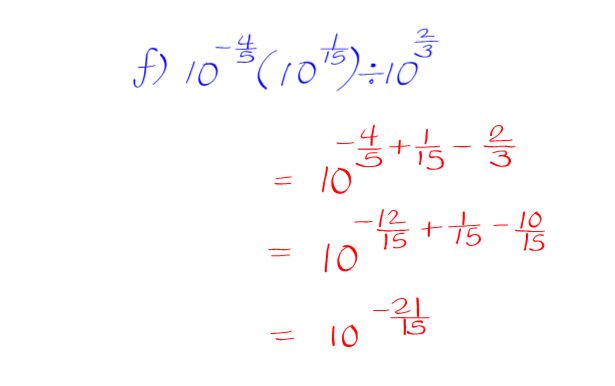 f) 10^{-4/5}(10^{1/15})÷10^{2/3}
= 10^{-4/5+1/15-2/3}
= 10^{-12/15+1/15-10/15}
= 10^{-21/15}